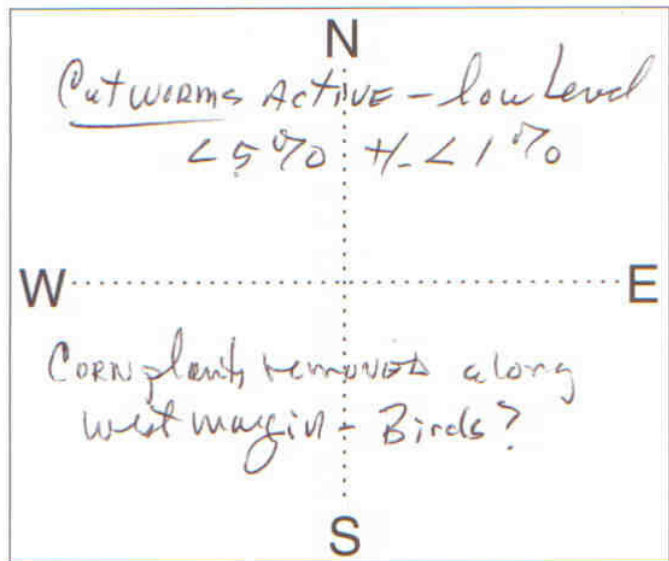 N
Cutworms Active - low Level
<5% +/- <1%
W E
Corn plants removed along
west margin - Birds?
S